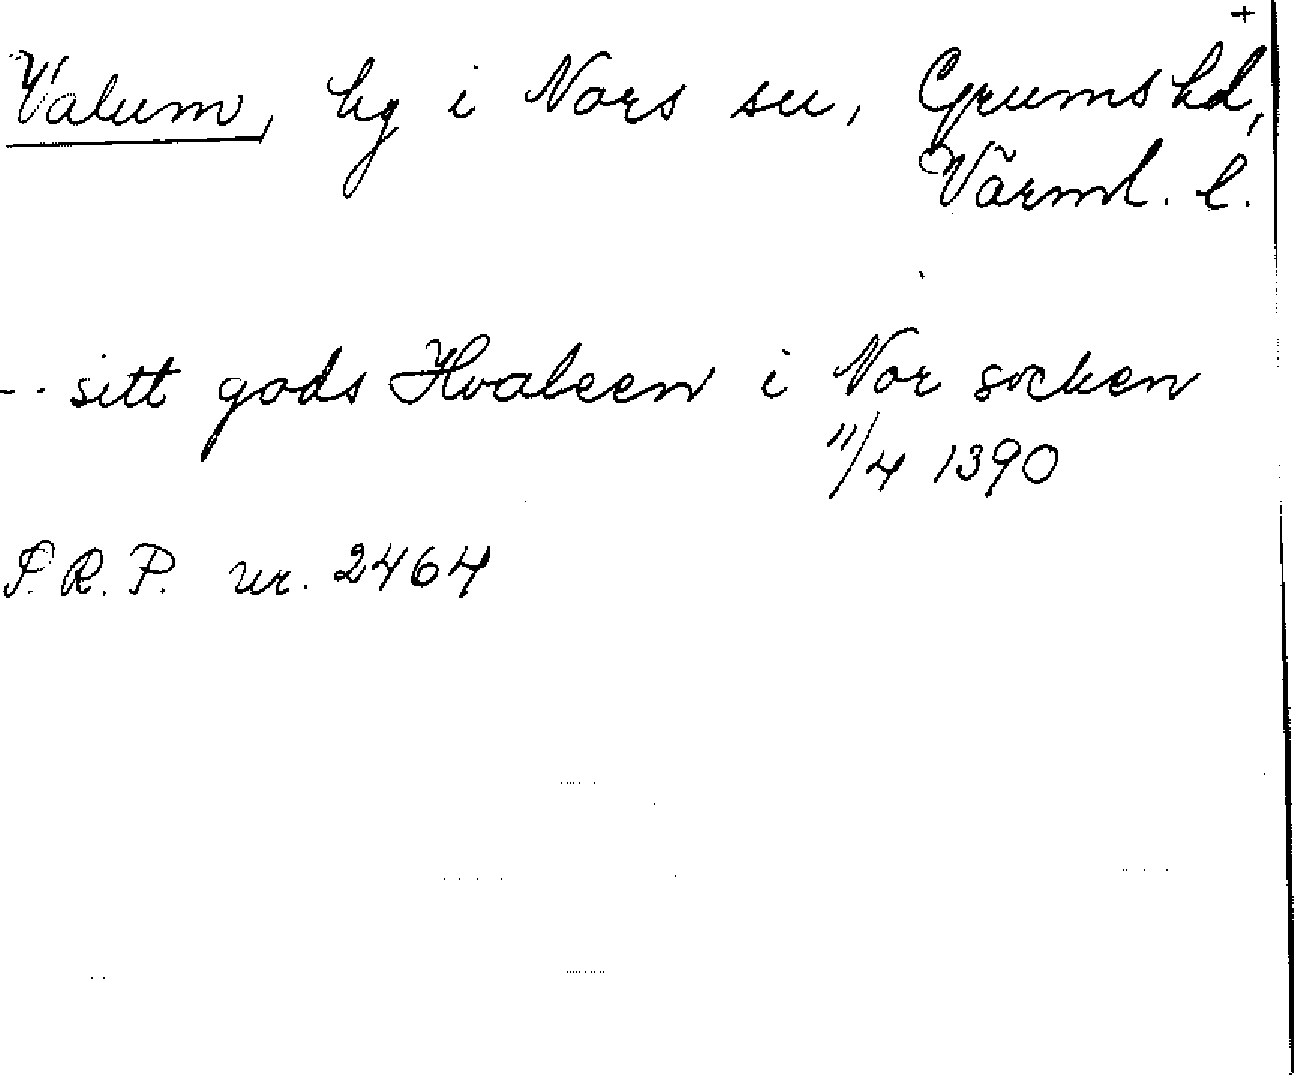 +
Valum, hg i Nors sn, Grums hd,
Värml. l.
-- sitt gods Hvaleem i Nor socken
11/4 1390
S.R.P. nr. 2464